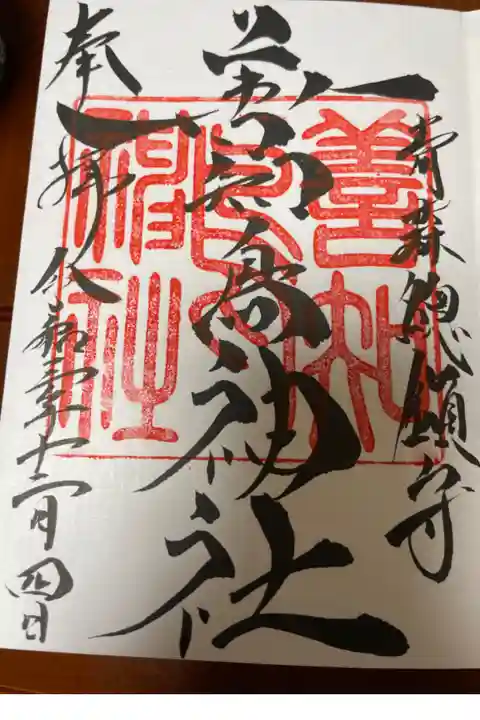 青森總鎮守
善知鳥神社
奉拝 令和
月四日
善知
神社